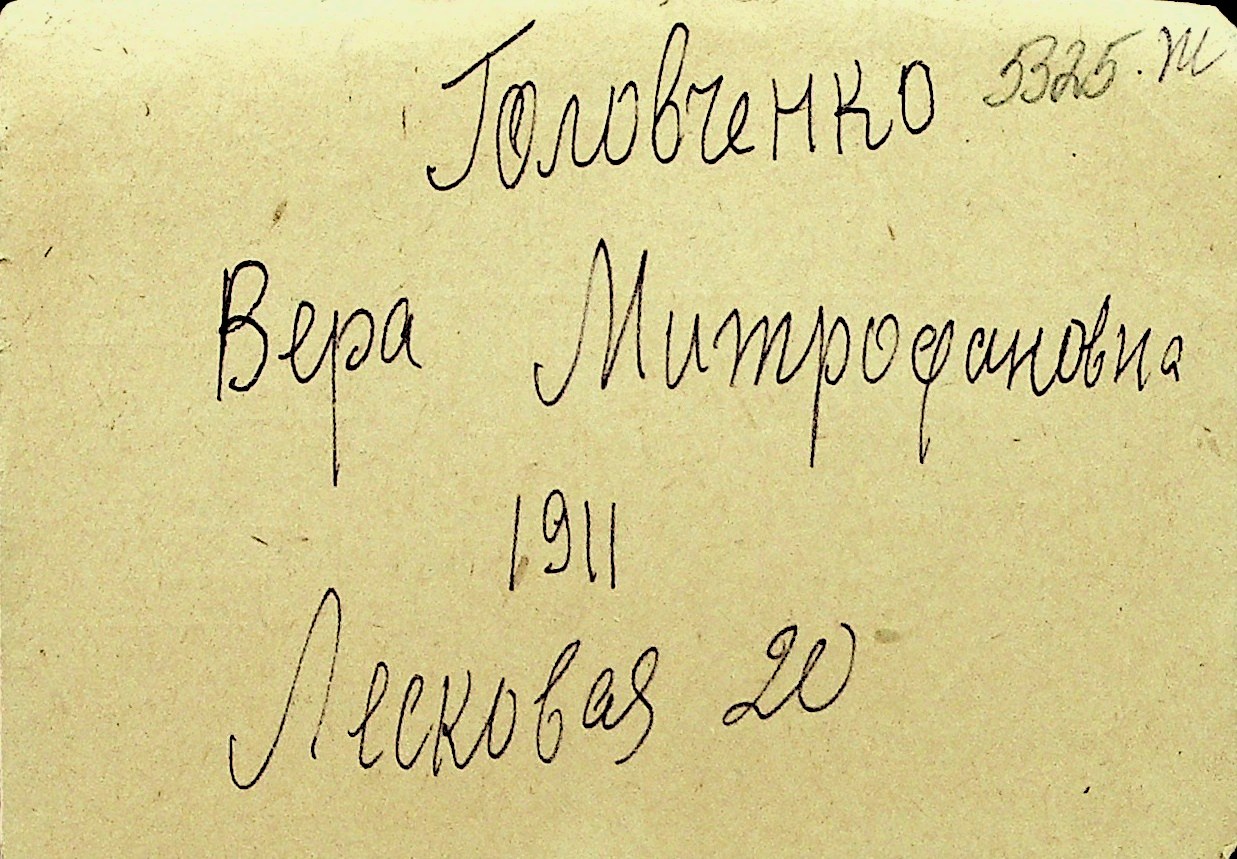 Головченко 5325.ж
Вера Митрофановна
1911
Лесковая 20